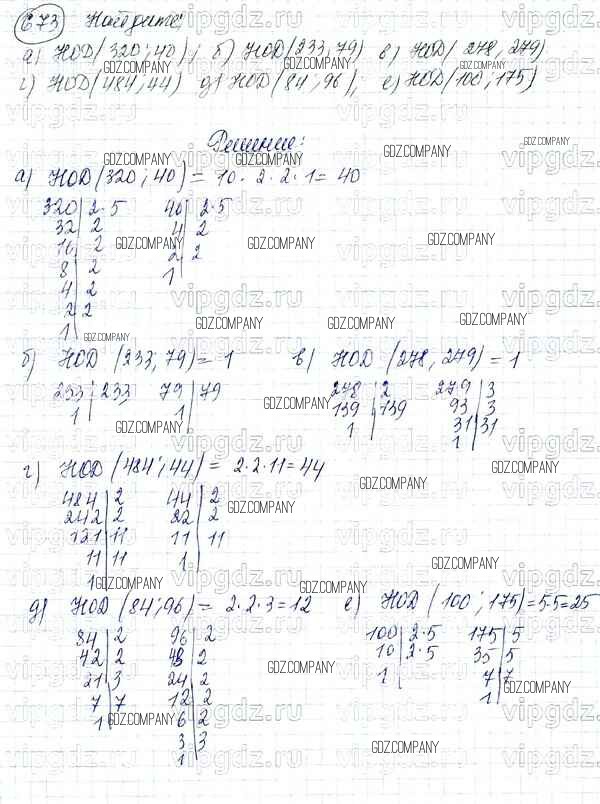 673 Найдите:
а) НОД(320; 40); б) НОД(233, 79) в) НОД(278, 279)
г) НОД(484; 44) д) НОД(84; 96), е) НОД(100; 175)
Решение:
а) НОД(320; 40) = 10 · 2 · 2 · 1 = 40
320 | 2·5 40 | 2·5
32 | 2 4 | 2
16 | 2 2 | 2
8 | 2 1
4 | 2
2 | 2
1
б) НОД (233; 79) = 1 в) НОД (278, 279) = 1
233 | 233 79 | 79 278 | 2 279 | 3
1 1 139 | 139 93 | 3
1 31 | 31
1
г) НОД (484; 44) = 2·2·11 = 44
484 | 2 44 | 2
242 | 2 22 | 2
121 | 11 11 | 11
11 | 11 1
1
д) НОД (84; 96) = 2·2·3 = 12 е) НОД (100; 175) = 5·5 = 25
84 | 2 96 | 2 100 | 2·5 175 | 5
42 | 2 48 | 2 10 | 2·5 35 | 5
21 | 3 24 | 2 1 7 | 7
7 | 7 12 | 2 1
1 6 | 2
3 | 3
1
vipgdz.ru
GDZ.COMPANY